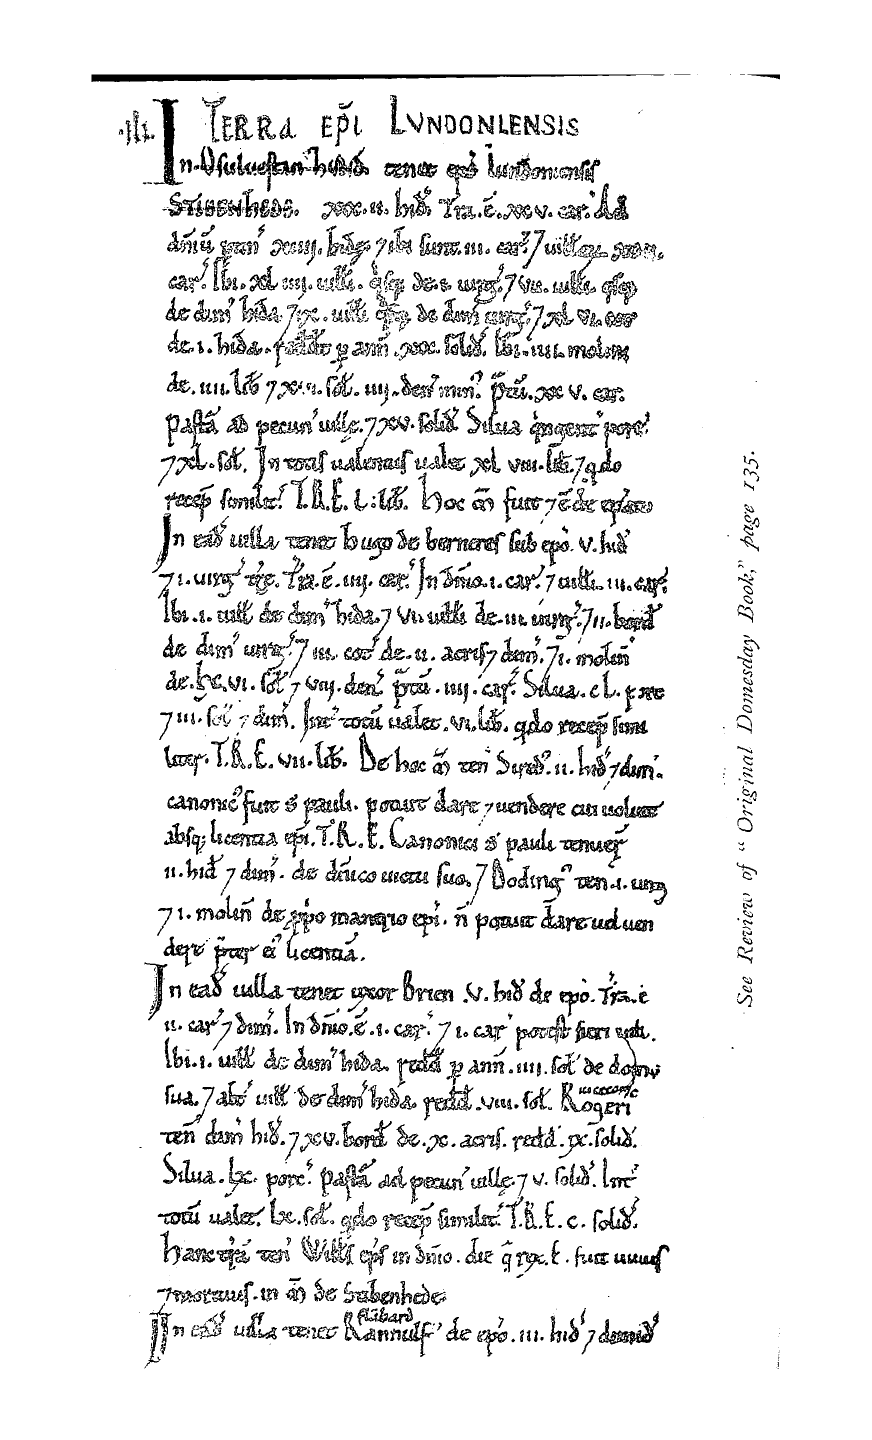 .III. TERRA EP̃I LVNDONIENSIS
In Osuluestan hund̃. tenet ep̃s Lundoniensis
STIBENHEDE. xxx.II. hid̃. Tr̃a.ẽ.xxv. car̃. Ad
dñiũ ptiñ xIIII. hidę 7 ibi sunt.III. car̃.7 uill̃
car̃. Ibi. xl IIII. uill̃i. q̃sq; de.I. uirg̃.7 VII. uill̃i. q̃sq;
de dim̃ hida 7 IX. uill̃i q̃sq; de dim̃ uirg̃.7 xl VI. cot̃
de.I. hida. redd̃t p ann̄ .xxx. solid̃. Ibi.IIII. molini
de.IIII. lib̃ 7 xVI. sol̃. IIII. deñ min̾. p̃tũ. xxv. car̃.
Pastã ad pecun̾ uillę.7 xv. solid̃ Silua q̃ngent̾ porc̃.
7 xl. sol̃. In totis ualentijs ualet xl VIII. lib̃.7 q̃do
recep̃ similit̾. T.R.E. L. lib̃. Hoc m̃ fuit 7 ẽ de ep̃atu
In ead̃ uilla tenet hugo de berneres sub ep̃o. V. hid̃
7 I. uirg̃ tr̃ę. Tr̃a.ẽ. IIII. car̃. In dñio.I. car̃.7 uill̃i. III. car̃.
Ibi.I. uill̃ de dim̃ hida.7 VI. uill̃i de.III. uirg̃.7 II. bord̃
de dim̃ uirg̃.7 III. cot̃ de.II. acris 7 dim̃. 7 I. moliñ
de.lx.VI. sol̃ 7 VIII. deñ. p̃tũ. IIII. car̃. Silua. c L. porc̃
7 III. sol̃ 7 dim̃. Int̾ totũ ualet. VI. lib̃. q̃do recep̃ simi
liter. T.R.E. VII. lib̃. De hoc m̃ teñ Sired̾. II. hid̃ 7 dim̃.
canonic̾ fuit s̃ pauli. potuit dare 7 uendere cui uoluit
absq; licentia ep̃i. T.R.E. Canonici s̃ pauli tenuer̃
II. hid̃ 7 dim̃. de dñico uictu suo. 7 Doding̾ teñ.I. uirg̃
7 I. moliñ de p̃po manerio ep̃i. ñ potuit dare uel uen
dere p̃ter ei̾ licentiã.
In ead̃ uilla tenet uxor Brien .V. hid̃ de ep̃o. Tr̃a.ẽ
II. car̃ 7 dim̃. In dñio.ẽ.I. car̃.7 I. car̃ potest fieri uill̃.
Ibi.I. uill̃ de dim̃ hida. redd̃ p ann̄. IIII. sol̃ de domo
sua. 7 alt̾ uill̃ de dim̃ hida redd̃. VIII. sol̃. Rogeri
teñ dim̃ hid̃. 7 xv. bord̃ de.x. acris. redd̃. IX. solid̃.
Silua. lx. porc̃. Pastã ad pecun̾ uillę.7 V. solid̃. Int̾
totũ ualet. lx. sol̃. q̃do recep̃ similit̾. T.R.E. c. solid̃.
Hanc tr̃ã teñ Will̃s ep̃s in dñio. die q̃ rex.E. fuit uiuus
7 mortuus. in m̃ de Stibenhede
flãbard
In ead̃ uilla tenet Rannulf̾ de ep̃o. III. hid̃ 7 dimid̃
See Review of “Original Domesday Book,” page 135.